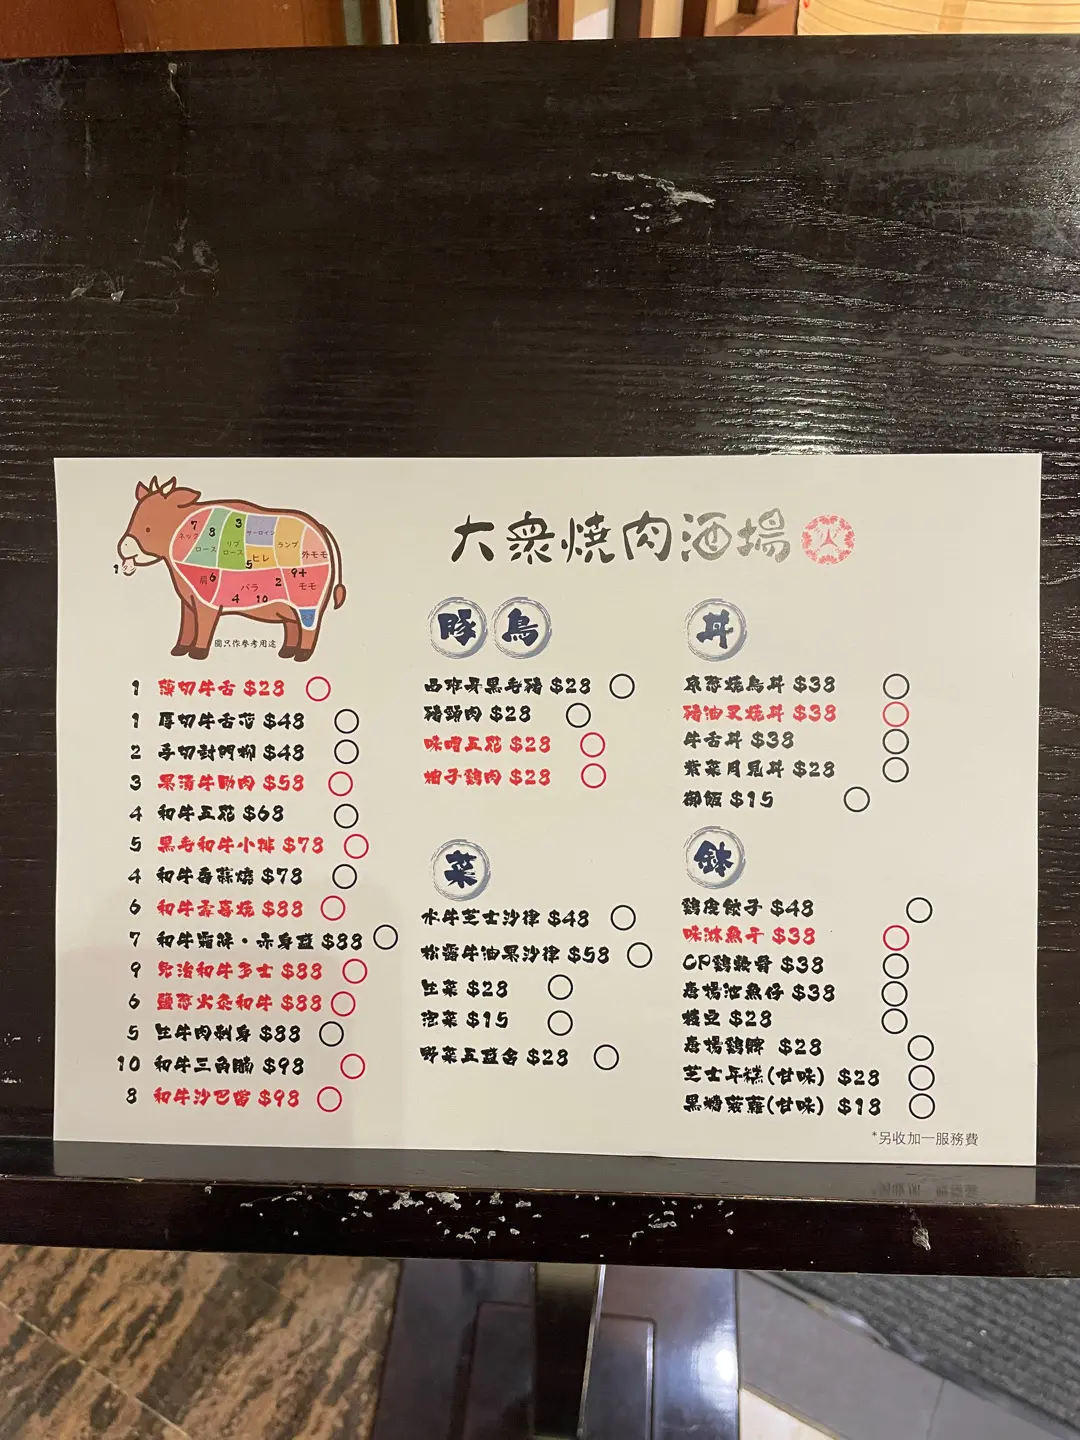 大衆燒肉酒場 火
7
ネック
8
ロース
3
リブロース
サーロイン
ランプ
外モモ
5
ヒレ
1 タン
肩 6
バラ
2
9 4
モモ
4
10
圖只作參考用途
1 薄切牛舌 $28
1 厚切牛舌芯 $48
2 手切封門柳 $48
3 果漬牛肋肉 $58
4 和牛五花 $68
5 黑毛和牛小排 $78
4 和牛香蒜燒 $78
6 和牛壽喜燒 $88
7 和牛霜降・赤身盛 $88
9 免治和牛多士 $88
6 鹽蔥火灸和牛 $88
5 生牛肉刺身 $88
10 和牛三角腩 $98
8 和牛沙巴翁 $98
豚 鳥
西班牙黑毛豬 $28
豬頸肉 $28
味噌五花 $28
柚子鷄肉 $28
菜
水牛芝士沙律 $48
松露牛油果沙律 $58
生菜 $28
泡菜 $15
野菜五盛合 $28
丼
京蔥燒鳥丼 $38
豬油叉燒丼 $38
牛舌丼 $38
紫菜月見丼 $28
御飯 $15
鉢
鷄皮餃子 $48
味淋魚干 $38
CP鷄軟骨 $38
唐揚池魚仔 $38
枝豆 $28
唐揚鷄髀 $28
芝士年糕(甘味) $28
黑糖菠蘿(甘味) $18
*另收加一服務費